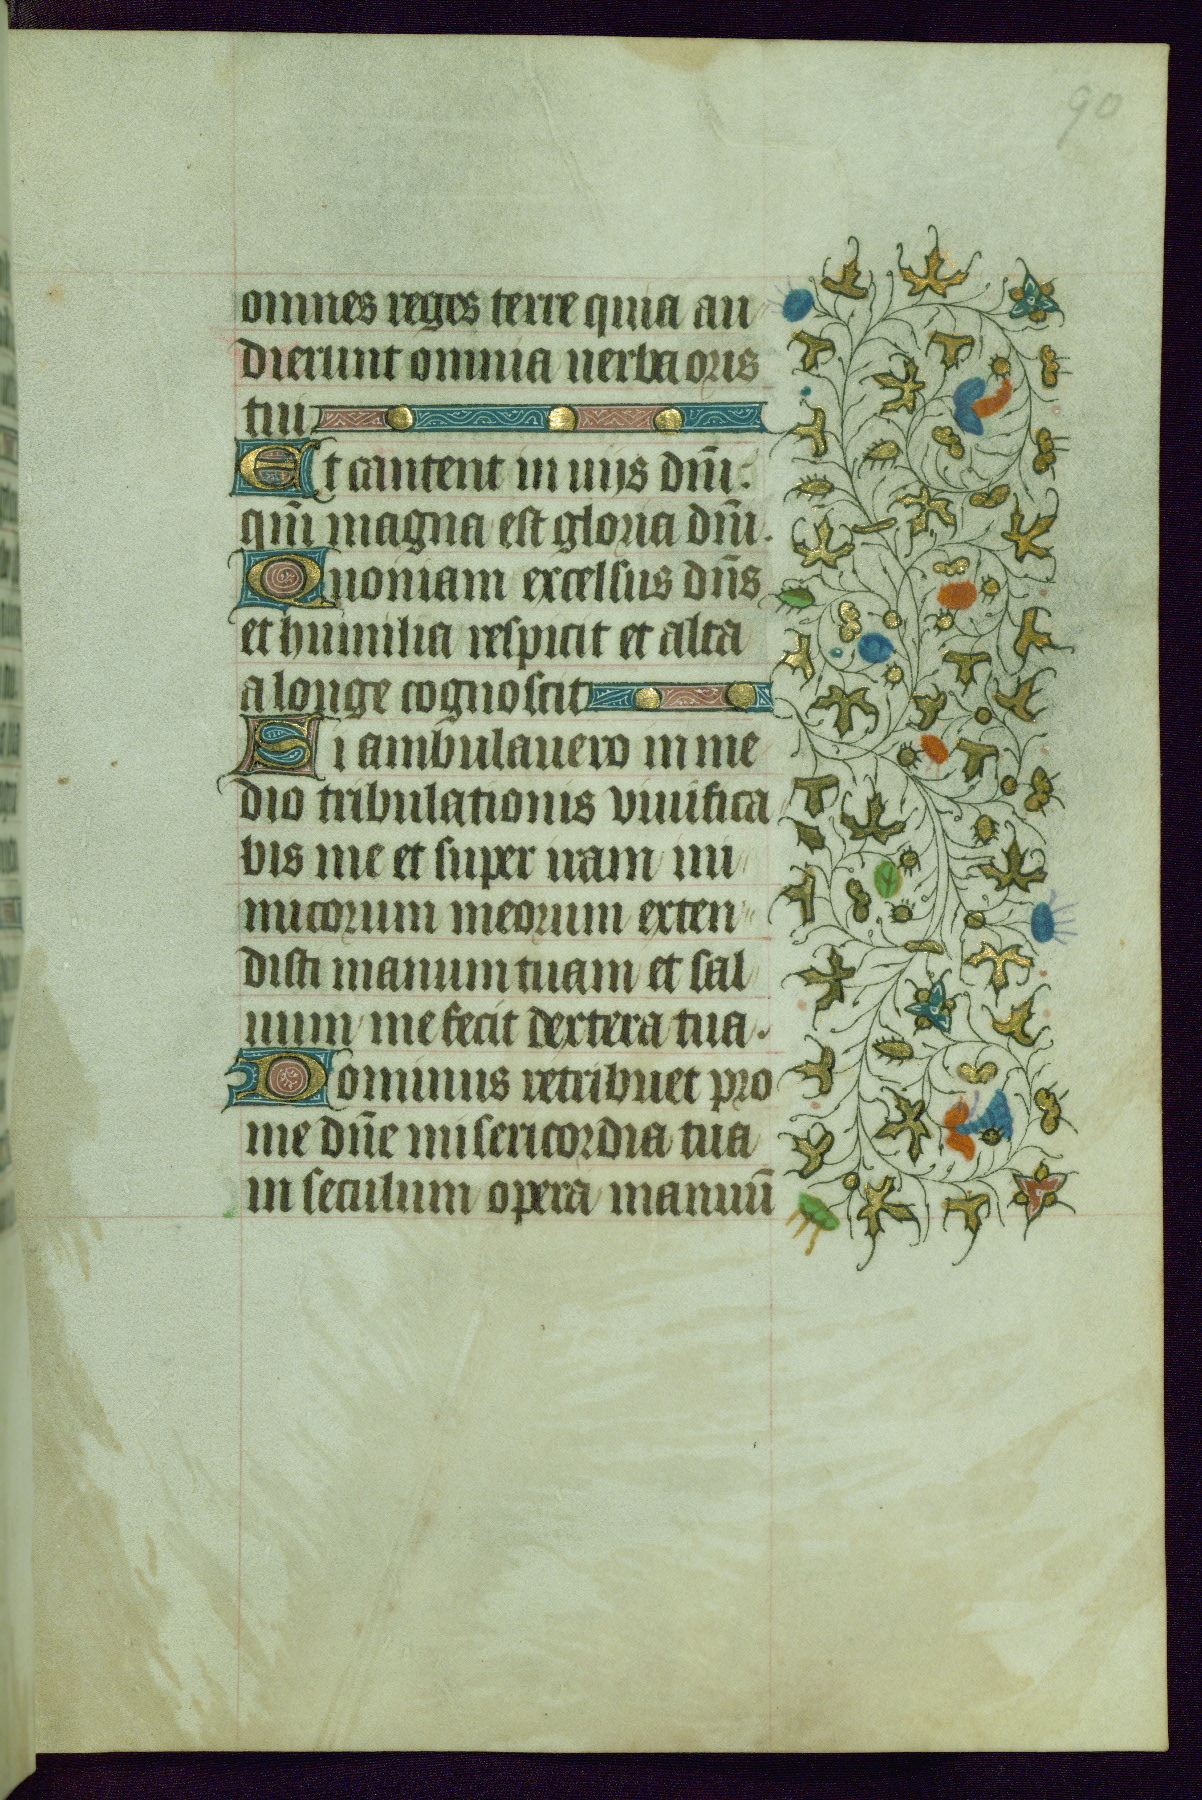 90
omnes reges terre quia au
dierunt omnia uerba oris
tui
Et cantent in uijs dñi:
qm̄ magna est gloria dñi.
Quoniam excelsus dñs
et humilia respicit et alta
a longe cognoscit
Si ambulauero in me
dio tribulationis viuifica
bis me et super iram ini
micorum meorum exten
disti manum tuam et sal
uum me fecit dextera tua.
Dominus retribuet pro
me dñe misericordia tua
in seculum opera manuū